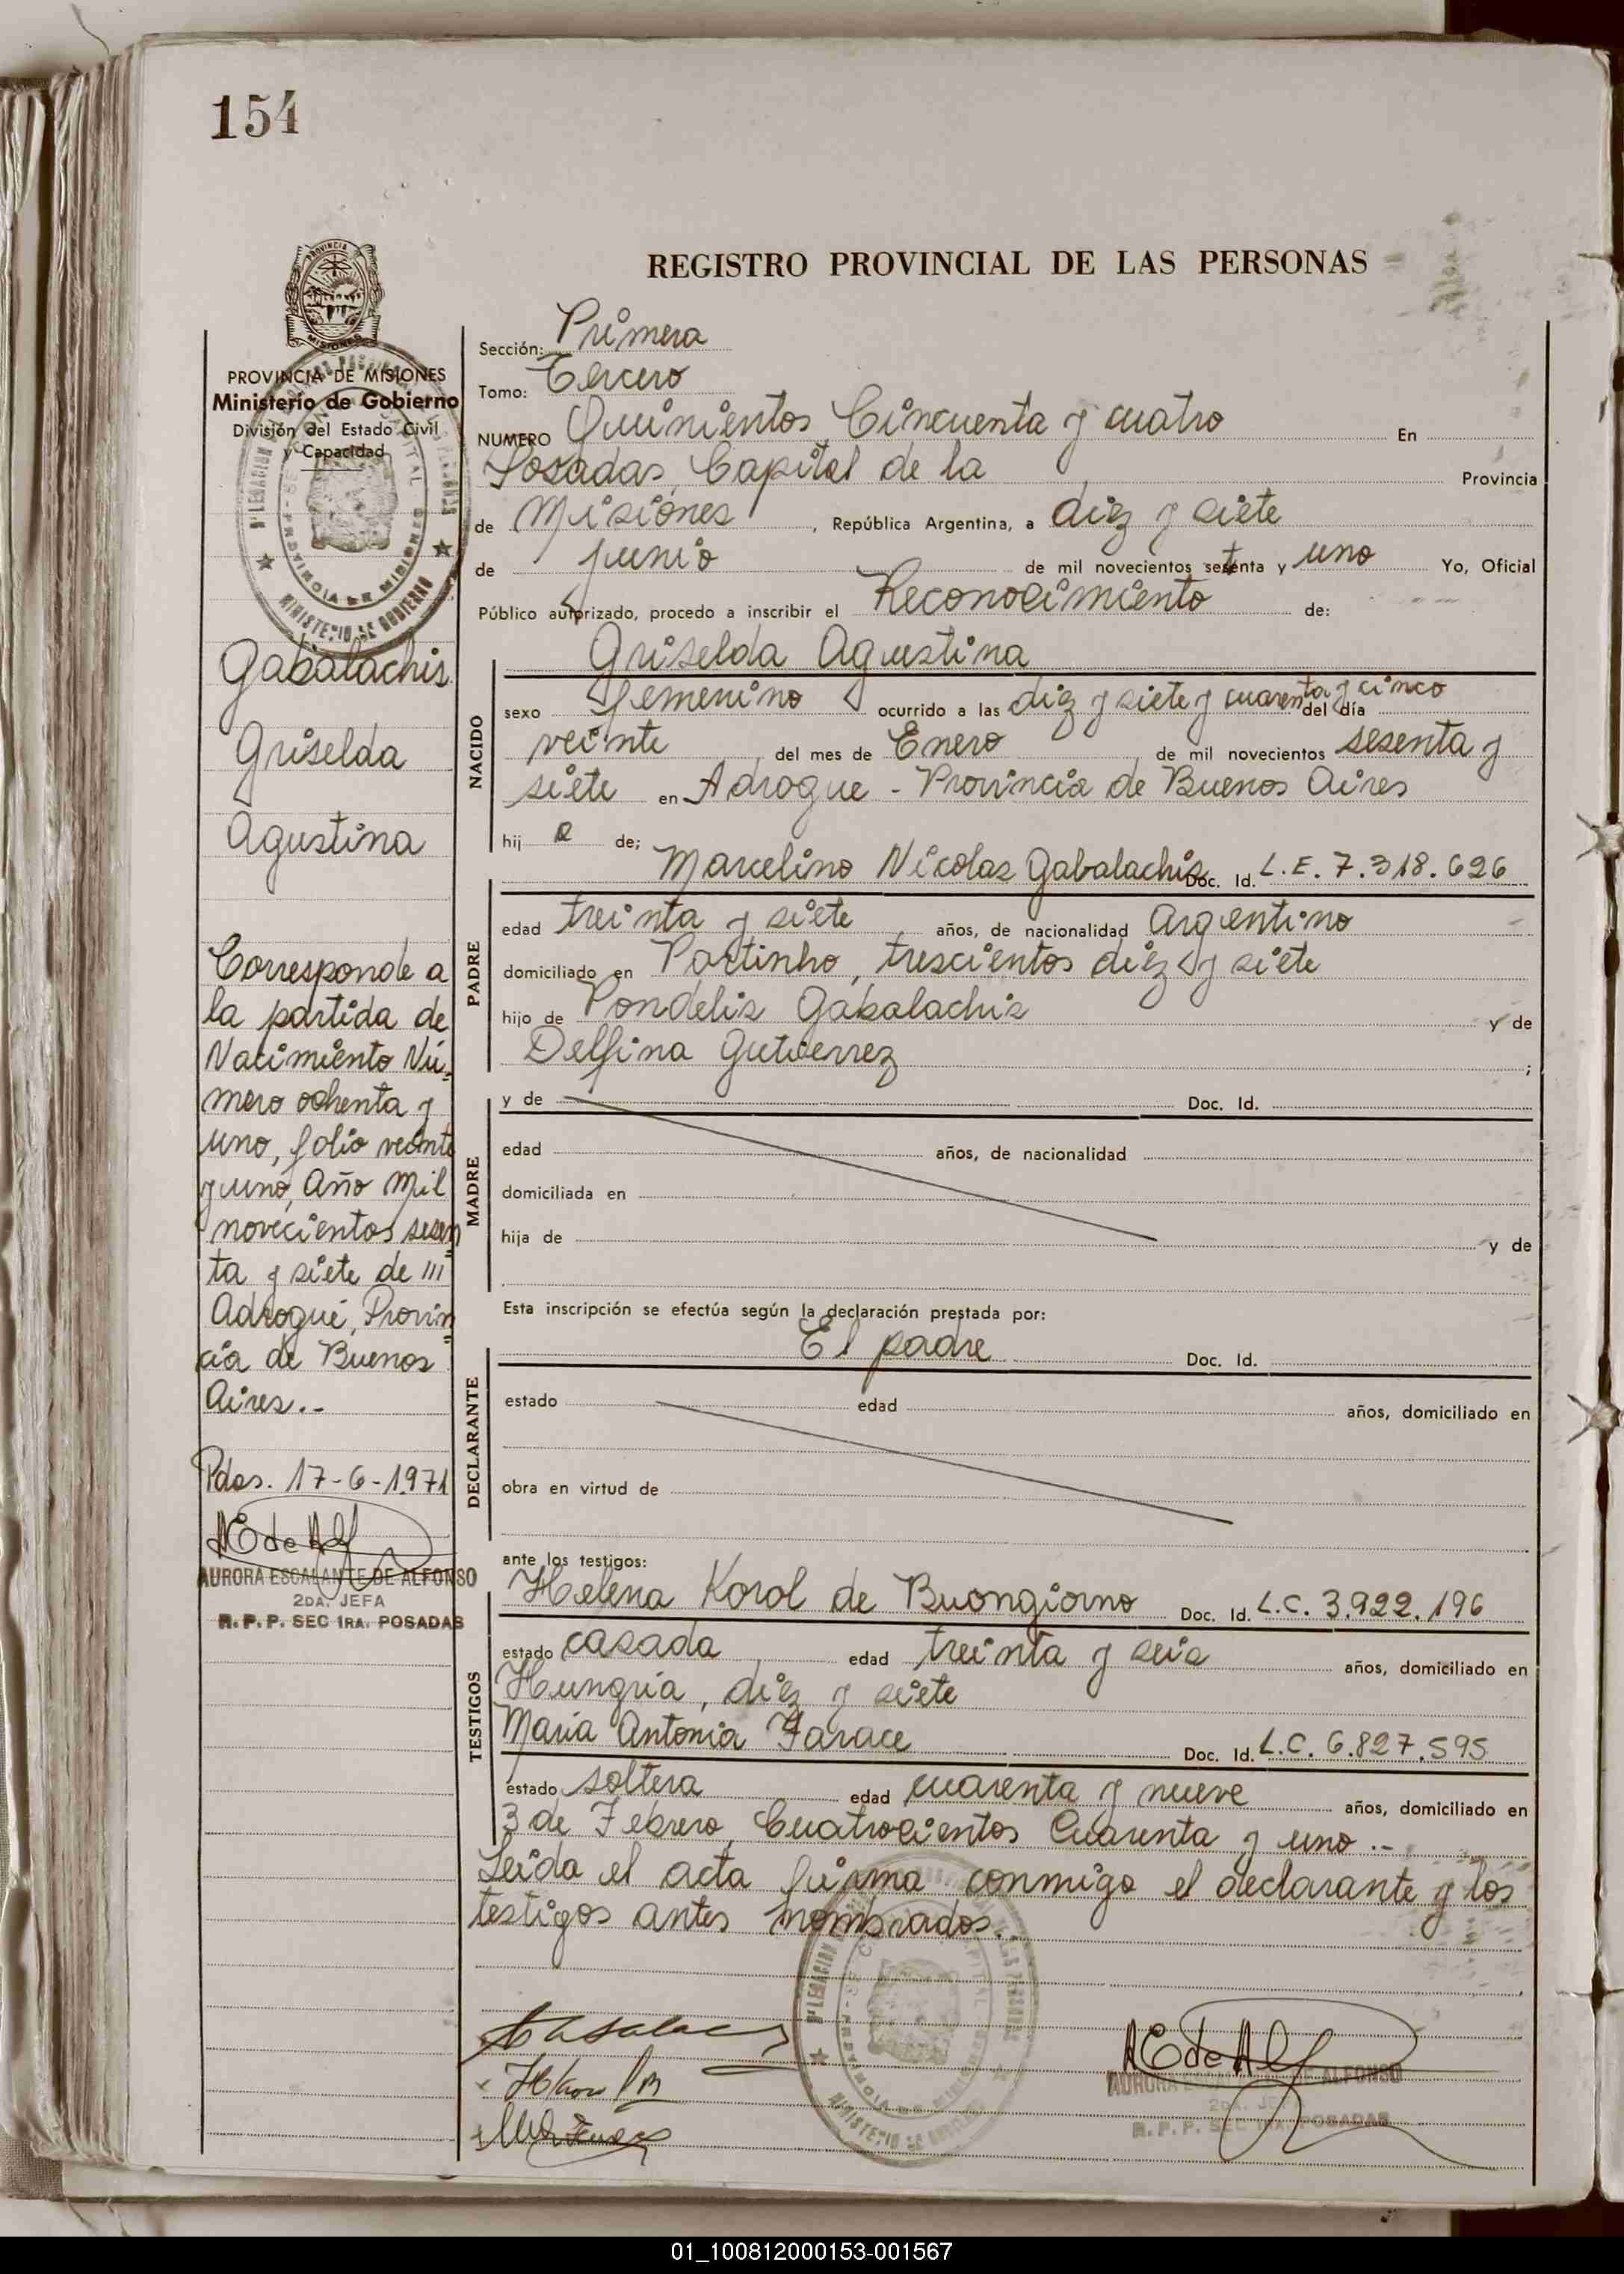 154
REGISTRO PROVINCIAL DE LAS PERSONAS
PROVINCIA DE MISIONES
Ministerio de Gobierno
División del Estado Civil
y Capacidad
Gabalachis
Griselda
Agustina
Corresponde a
la partida de
Nacimiento Nú-
mero ochenta y
uno, folio veinte
y uno, Año Mil
novecientos sesen
ta y siete de ///
Adrogué, Provin
cia de Buenos
Aires.-
Pdas. 17-6-1971
AURORA ESCALANTE DE ALFONSO
2DA. JEFA
R. P. P. SEC 1RA. POSADAS
Sección: Primera
Tomo: Tercero
NUMERO Quinientos Cincuenta y cuatro En
Posadas, Capital de la Provincia
de Misiones, República Argentina, a diez y siete
de junio de mil novecientos setenta y uno Yo, Oficial
Público autorizado, procedo a inscribir el Reconocimiento de:
Griselda Agustina
NACIDO
sexo femenino ocurrido a las diez y siete y cuarenta y cinco del día
veinte del mes de Enero de mil novecientos sesenta y
siete en Adrogue - Provincia de Buenos Aires
hij a de;
Marcelino Nicolas Gabalachis Doc. Id. L.E. 7.318.626
PADRE
edad treinta y siete años, de nacionalidad Argentino
domiciliado en Portinho, trescientos diez y siete
hijo de Pondelis Gabalachis y de
Delfina Gutierrez ;
MADRE
y de Doc. Id.
edad años, de nacionalidad
domiciliada en
hija de y de
Esta inscripción se efectúa según la declaración prestada por:
El padre Doc. Id.
DECLARANTE
estado edad años, domiciliado en
obra en virtud de
ante los testigos:
Helena Korol de Buongiorno Doc. Id. L.C. 3.922.196
TESTIGOS
estado casada edad treinta y seis años, domiciliado en
Hungria, diez y siete
Maria Antonia Farace Doc. Id. L.C. 6.827.595
estado soltera edad cuarenta y nueve años, domiciliado en
3 de Febrero, Cuatrocientos Cuarenta y uno.-
Leida el acta firma conmigo el declarante y los
testigos antes nombrados.
AURORA ESCALANTE DE ALFONSO
2DA. JEFA
R. P. P. SEC 1RA. POSADAS
01_100812000153-001567